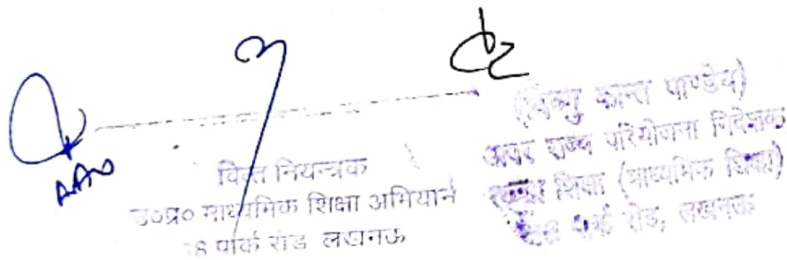 AAO
वित्त नियन्त्रक
उ०प्र० माध्यमिक शिक्षा अभियान
18 पार्क रोड लखनऊ
(विष्णु कान्त पाण्डेय)
अपर राज्य परियोजना निदेशक
समग्र शिक्षा (माध्यमिक शिक्षा)
पार्क रोड, लखनऊ